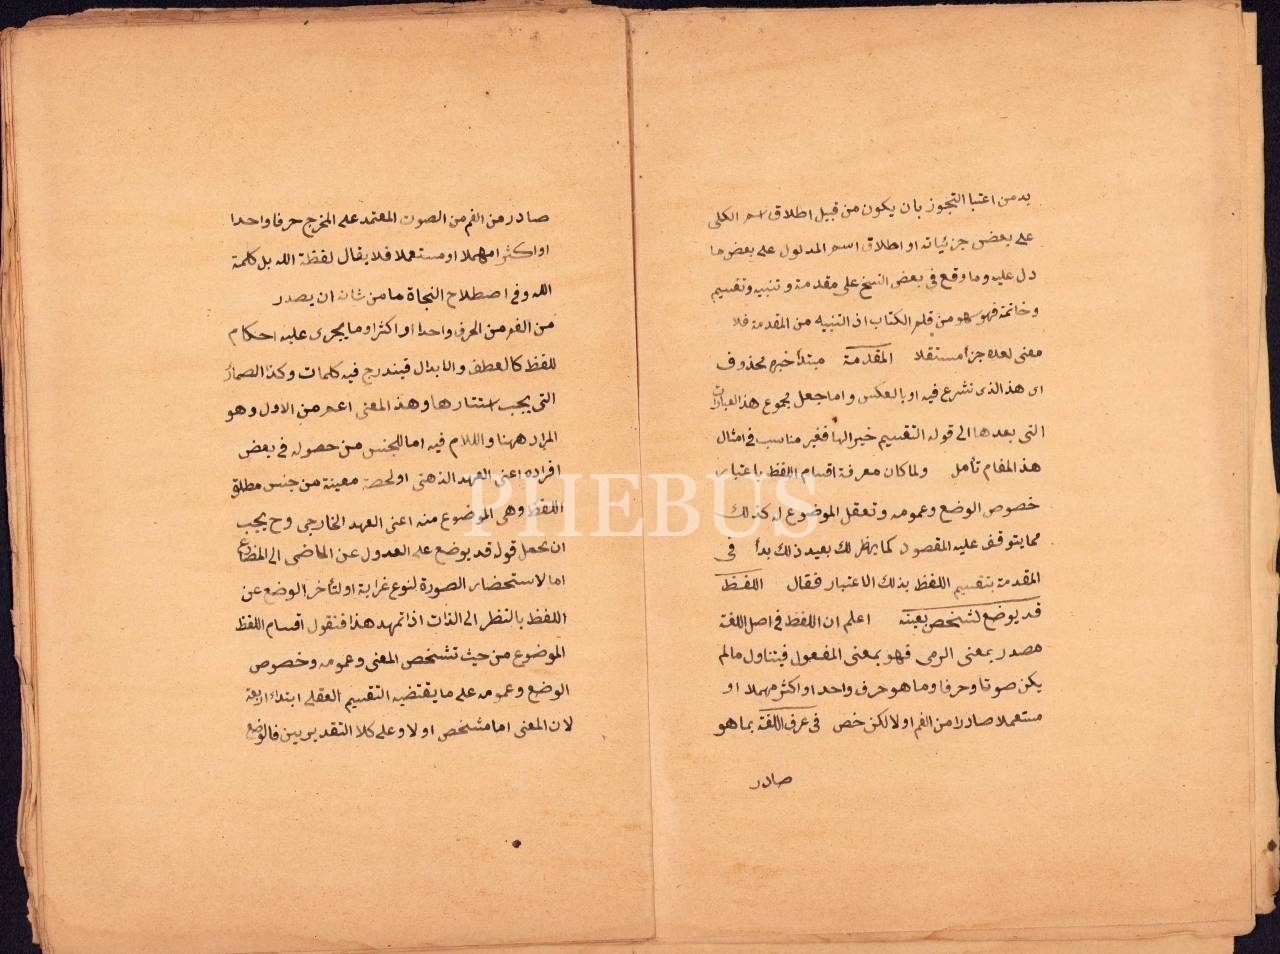 بد من اعتبا التجوز بان يكون من قبيل اطلاق اسم الكلى
على بعض جزئياته او اطلاق اسم المدلول على بعض ما
دل عليه وما وقع فى بعض النسخ على مقدمة و تنبيه وتقسيم
وخاتمة فهو سهو من قلم الكتاب اذ التنبيه من المقدمة فلا
معنى لعده جزأ مستقلا المقدمة مبتدأ خبره محذوف
اى هذا الذى نشرع فيه او بالعكس واما جعل مجموع هذ العبارات
التى بعدها الى قوله التقسيم خبرا لها فغير مناسب فى امثال
هذ المقام تأمل ولما كان معرفة اقسام اللفظ باعتبار
خصوص الوضع وعمومه وتعقل الموضوع له كذلك
مما يتوقف عليه المقصود كما يظهر لك بعيد ذلك بدأ فى
المقدمة بتقسيم اللفظ بذلك الاعتبار فقال اللفظ
قد يوضع لشخص بعينه اعلم ان اللفظ فى اصل اللغة
مصدر بمعنى الرمى فهو بمعنى المفعول فيتناول مالم
يكن صوتا وحرفا وما هو حرف واحد او اكثر مهملا او
مستعملا صادرا من الفم اولا لكن خص فى عرف اللغة بما هو
صادر
صادر من الفم من الصوت المعتمد على المخرج حرفا واحدا
او اكثر مهملا او مستعملا فلا يقال لفظة الله بل كلمة
الله وفى اصطلاح النجاة ما من شانه ان يصدر
من الفم من الحرف واحدا او اكثر او ما يجرى عليه احكام
للفظ كالعطف والابدال فيندرج فيه كلمات وكذا الضمائر
التى يجب استتارها وهذ المعنى اعم من الاول وهو
المراد ههنا واللام فيه اما للجنس من حصوله فى بعض
افراده اعنى العهد الذهنى او لحصة معينة من جنس مطلق
اللفظ وهى الموضوع منه اعنى العهد الخارجى وح يجب
ان يحمل قوله قد يوضع على العدول عن الماضى الى المضارع
اما لاستحضار الصورة لنوع غرابة او لتأخر الوضع عن
اللفظ بالنظر الى الذات اذا تمهد هذا فنقول اقسام اللفظ
الموضوع من حيث تشخص المعنى وعمومه وخصوص
الوضع وعمومه على ما يقتضيه التقسيم العقلى ابتداء اربعة
لان المعنى اما مشخص اولا وعلى كلا التقديرين فالوضع
PHEBUS